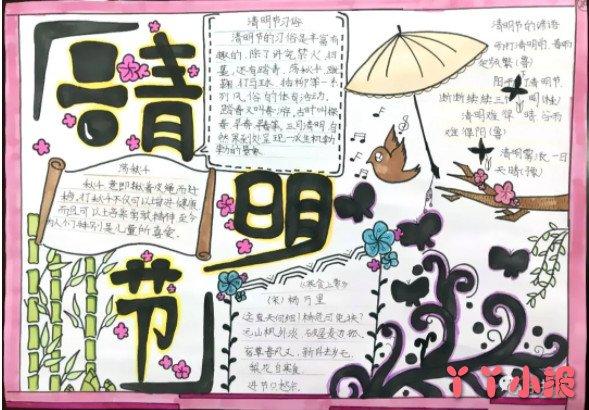 清明节
清明节习俗
清明节的习俗是丰富有
趣的,除了讲究禁火、扫
墓,还有踏青、荡秋千、蹴
鞠、打马球、插柳等一系
列风俗体育活动。
踏青又叫春游,古时叫探
春、寻春等。三月清明,自
然界到处呈现一派生机勃
勃的景象
荡秋千
秋千,意即揪着皮绳而迁
移,打秋千不仅可以增进健康
而且可以培养勇敢精神,至今
为人们特别是儿童的喜爱。
清明节的谚语
雨打清明前,春雨
定频繁(鲁)
阴雨下清明节,
断断续续三个月(桂)
清明难得晴,谷雨
难得阴(鲁)
清明雾浓,一日
天晴
《寒食上冢》
(宋)杨万里
迳直夫何细!桥危可免扶?
远山枫外淡,破屋麦边孤。
宿草春风又,新阡去岁无。
梨花自寒食,
进节只愁余。
丫丫小报